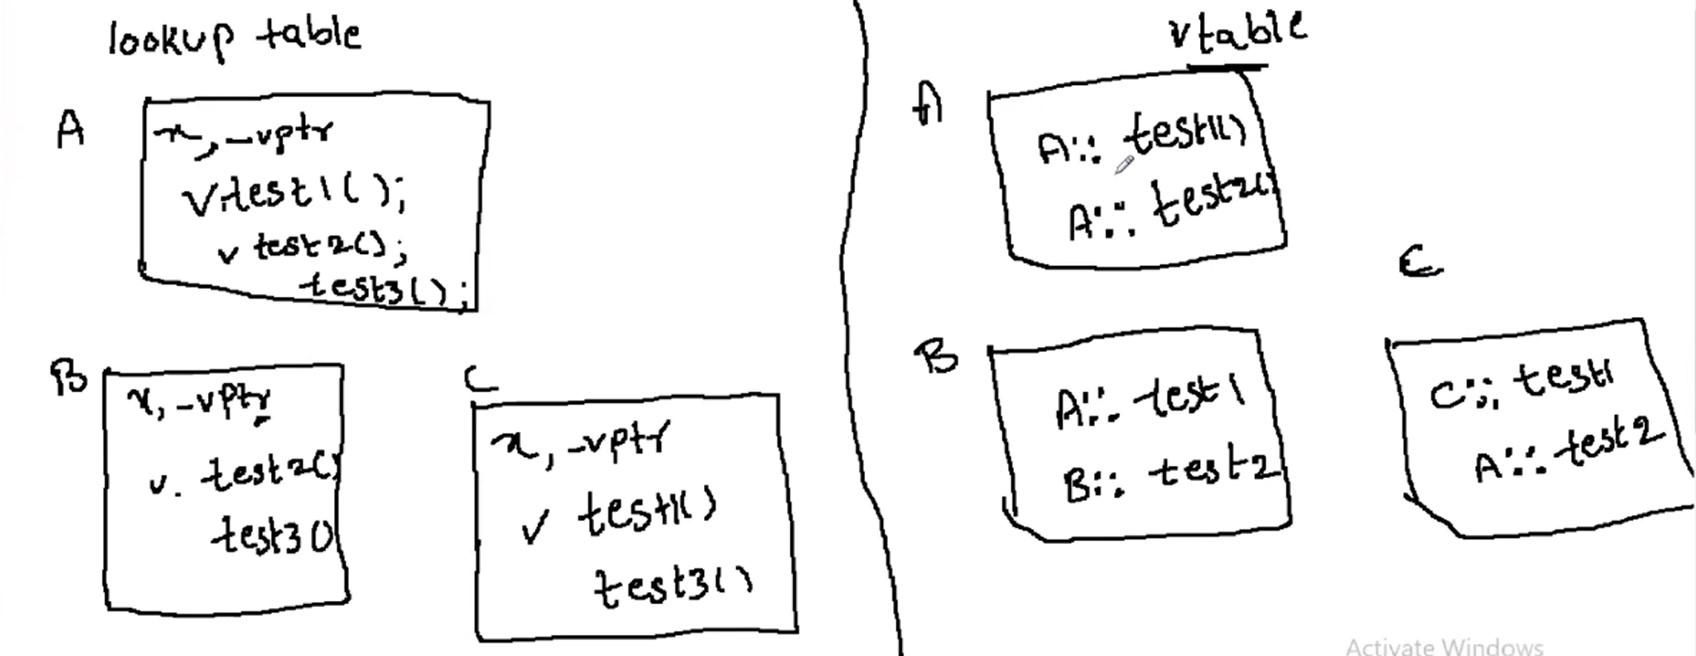 lookup table
A
x, -vptr
v.test1();
v test2();
test3();
B
x, -vptr
v. test2()
test3()
C
x, -vptr
v test1()
test3()
vtable
A
A:: test1()
A:: test2()
B
A:: test1
B:: test2
C
C:: test1
A:: test2
Activate Windows